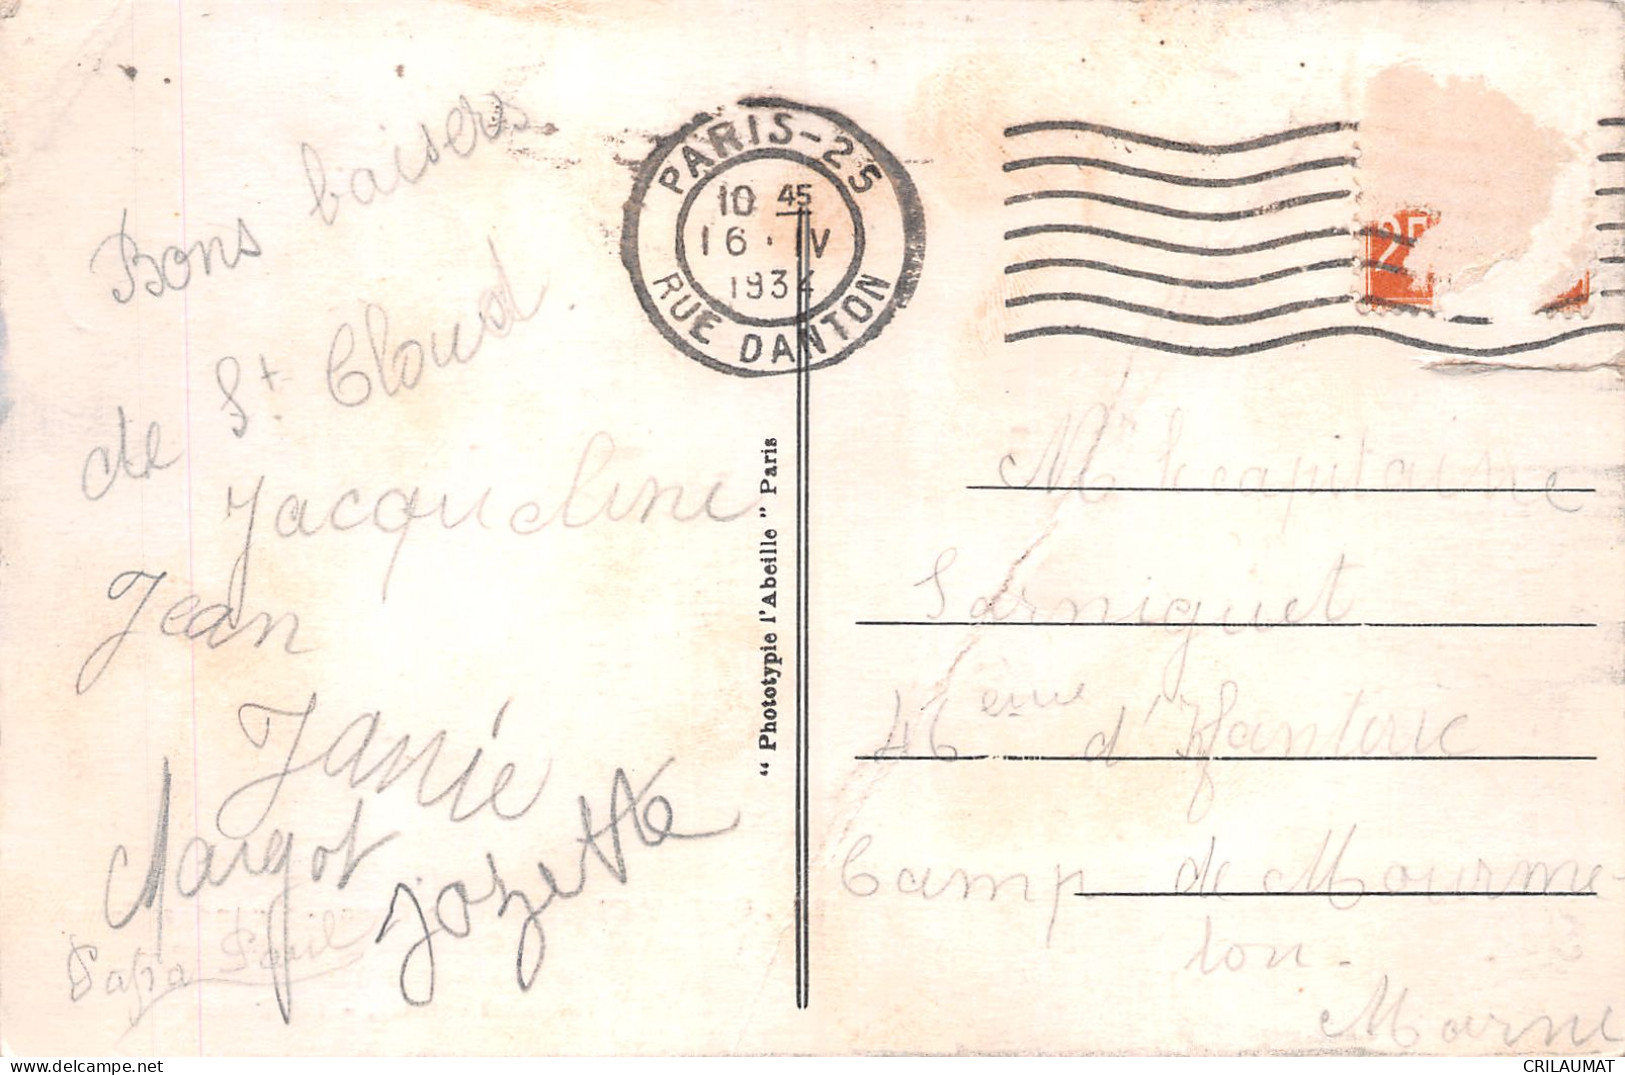 Bons baisers
de St Cloud.
Jacqueline
Jean
Janie
Margot
Jozette
Papa Paul
PARIS-25
10 45
16 · IV
1934
RUE DANTON
2F
“ Phototypie l'Abeille ” Paris
Mr le capitaine
Sarniguet
46eme d'Ifanterie
Camp de Mourme-
lon -
Marne
CRILAUMAT